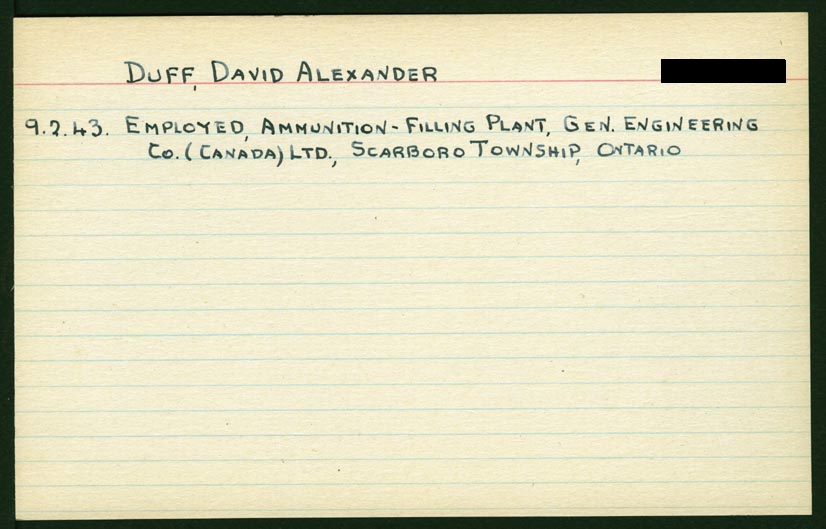 Duff, David Alexander
9.2.43. Employed, Ammunition-Filling Plant, Gen. Engineering
Co. (Canada) Ltd., Scarboro Township, Ontario